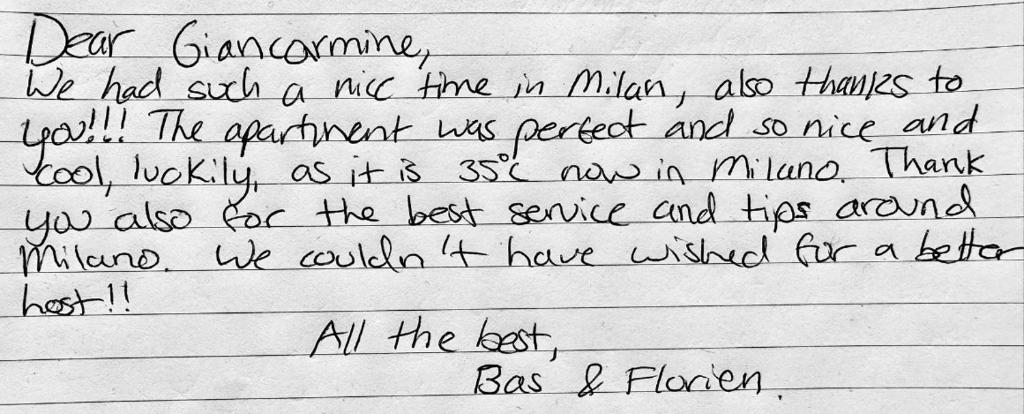 Dear Giancarmine,
We had such a nice time in Milan, also thanks to
you!!! The apartment was perfect and so nice and
cool, luckily, as it is 35°C now in Milano. Thank
you also for the best service and tips around
Milano. We couldn't have wished for a better
host!!
All the best,
Bas & Florien.